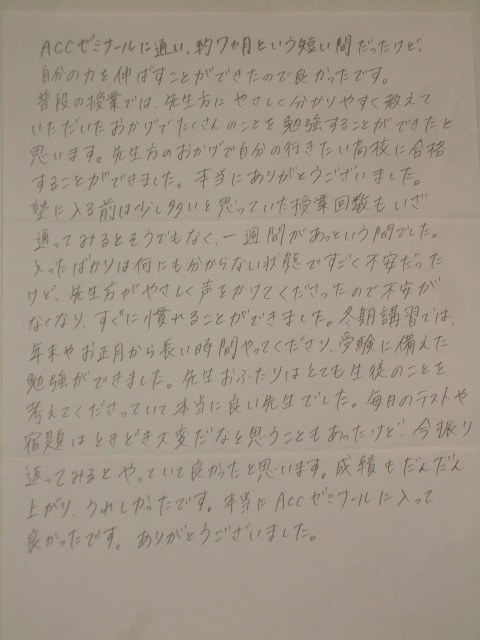 ACCゼミナールに通い、約7ヶ月という短い間だったけど、
自分の力を伸ばすことができたので良かったです。
普段の授業では、先生方にやさしく分かりやすく教えて
いただいたおかげでたくさんのことを勉強することができたと
思います。先生方のおかげで自分の行きたい高校に合格
することができました。本当にありがとうございました。
塾に入る前は少し多いと思っていた授業回数もいざ
通ってみるとそうでもなく、一週間があっという間でした。
入ったばかりは何にも分からない状態ですごく不安だった
けど、先生方がやさしく声をかけてくださったので不安が
なくなり、すぐに慣れることができました。冬期講習では、
年末やお正月から長い時間やってくださり、受験に備えた
勉強ができました。先生おふたりはとても生徒のことを
考えてくださっていて本当に良い先生でした。毎日のテストや
宿題はときどき大変だなと思うこともあったけど、今振り
返ってみるとやっていて良かったと思います。成績もだんだん
上がり、うれしかったです。本当にACCゼミナールに入って
良かったです。ありがとうございました。